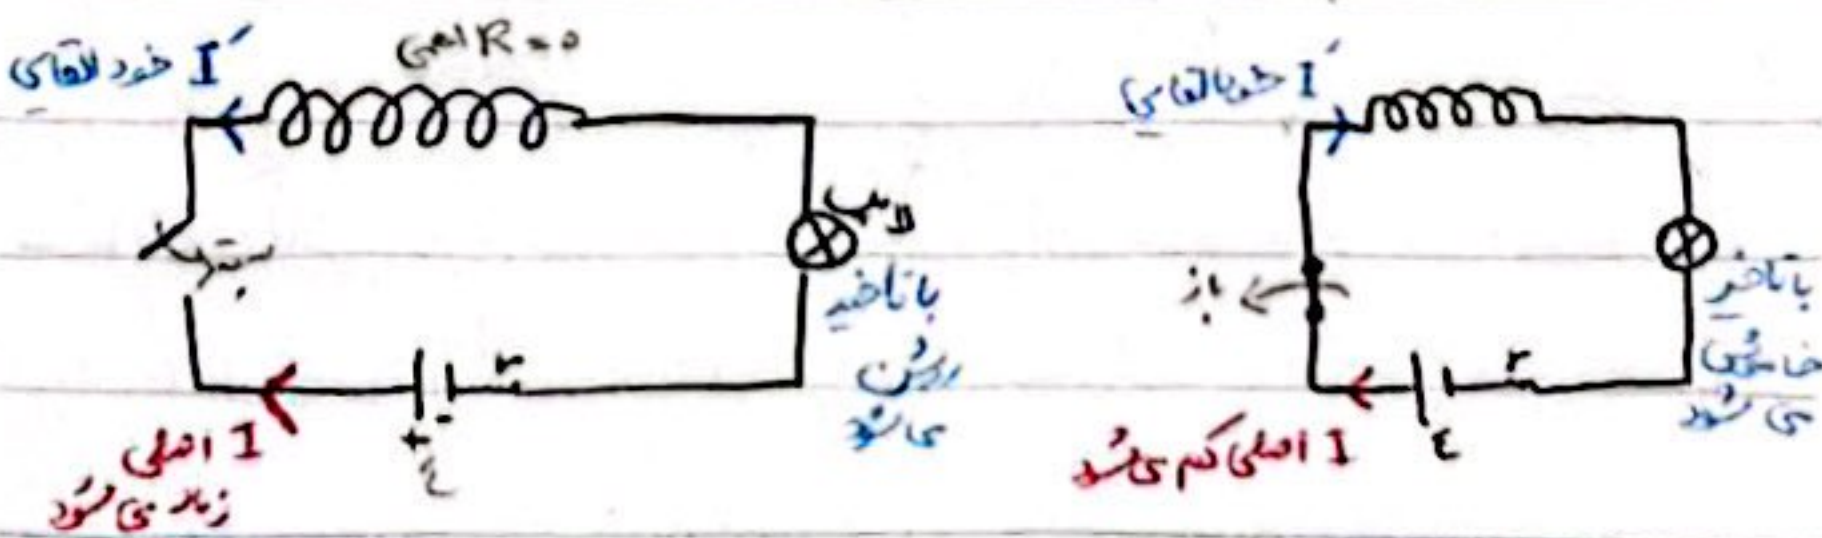 I′ خود القایی
R=0
لامپ
با تاخیر
روشن
می شود
r
+ -
ε
I اصلی
زیاد می شود
I′ خود القایی
باز
با تاخیر
خاموش
می شود
r
ε
I اصلی کم می شود